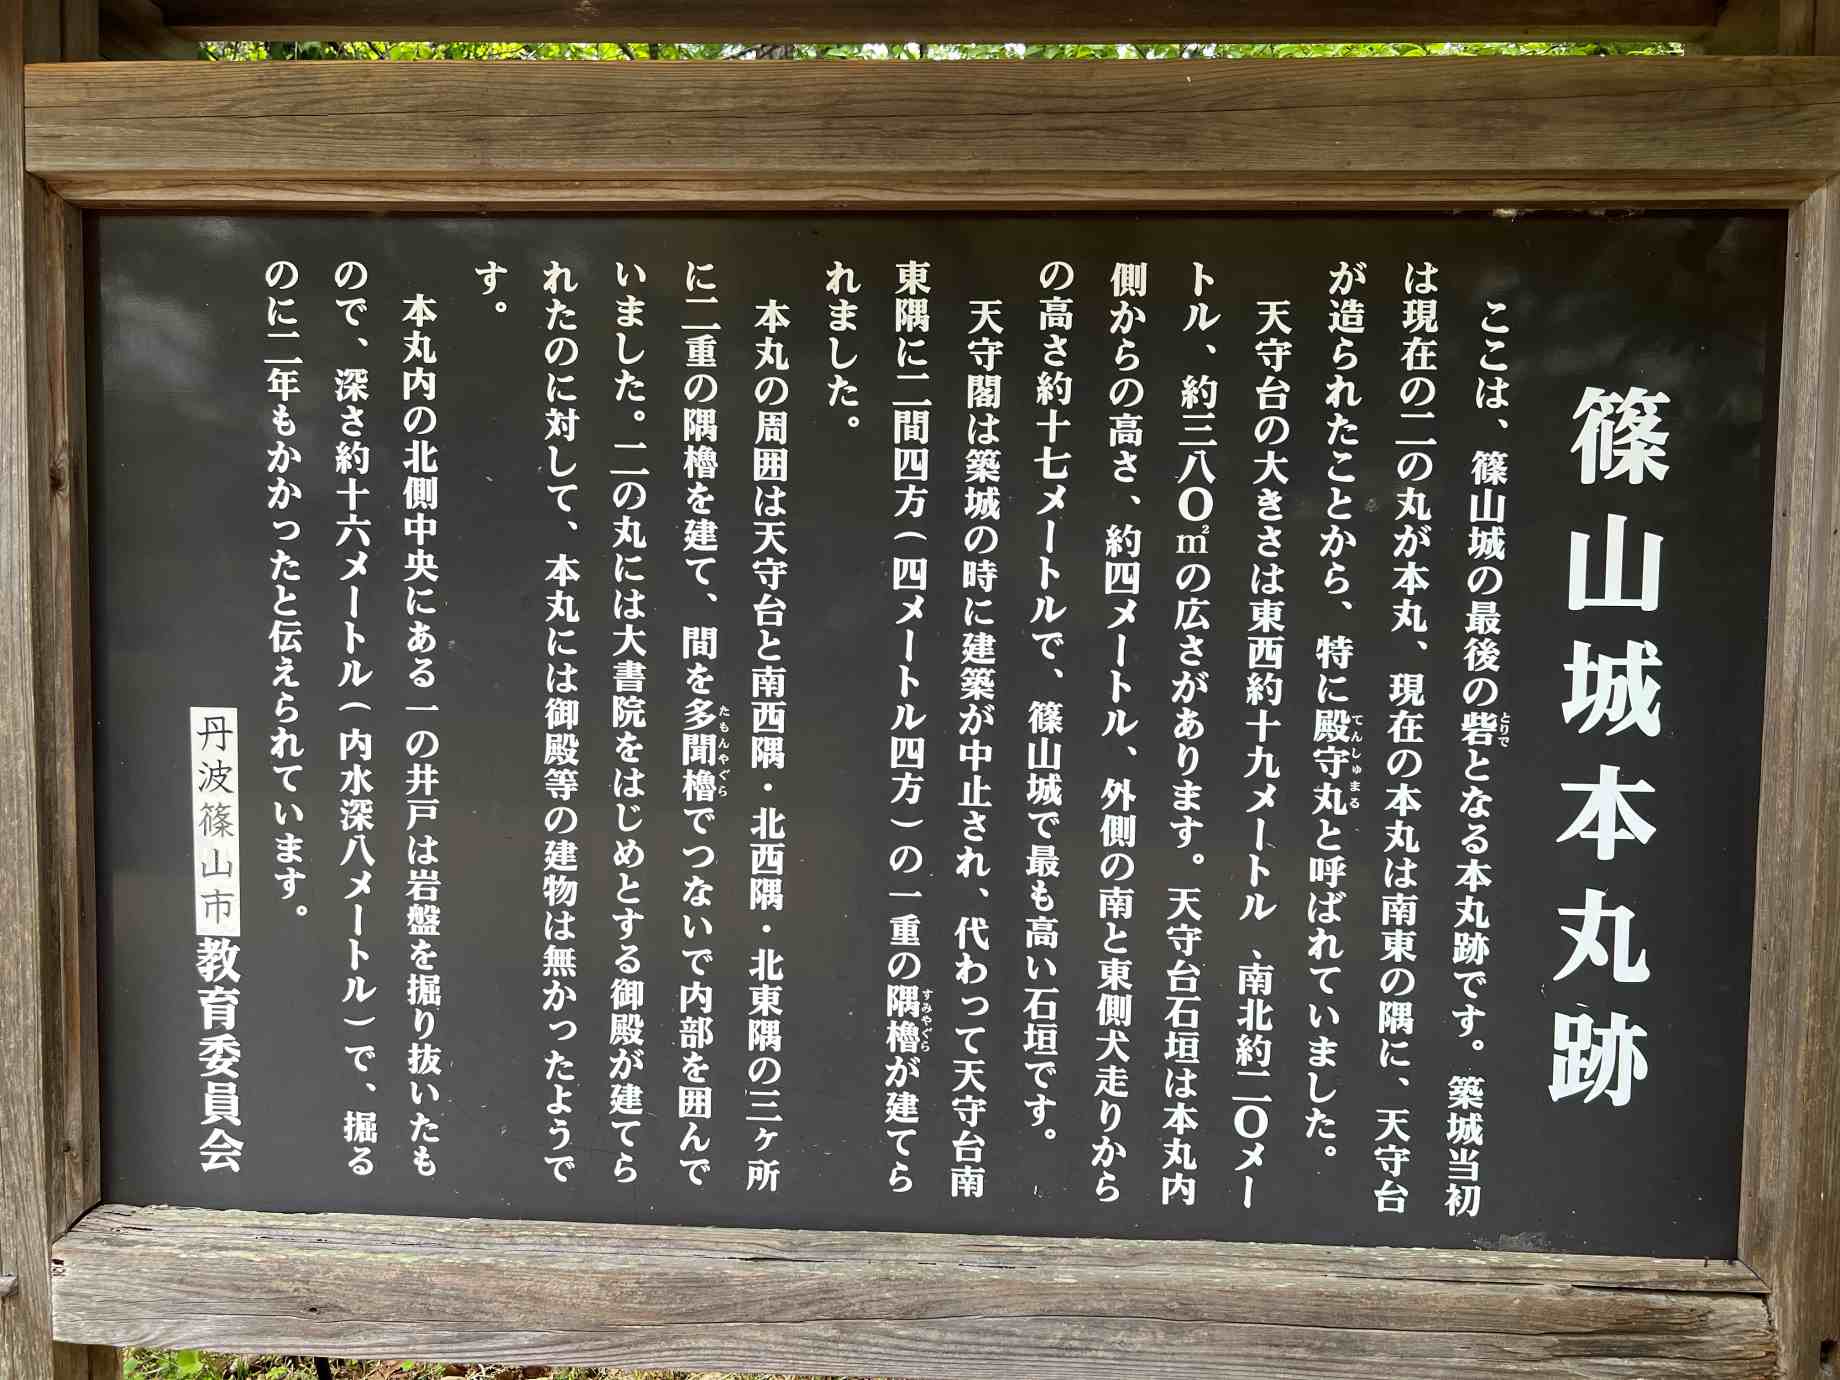 篠山城本丸跡
ここは、篠山城の最後の砦となる本丸跡です。築城当初
は現在の二の丸が本丸、現在の本丸は南東の隅に、天守台
が造られたことから、特に殿守丸と呼ばれていました。
天守台の大きさは東西約十九メートル、南北約二〇メー
トル、約三八〇㎡の広さがあります。天守台石垣は本丸内
側からの高さ、約四メートル、外側の南と東側犬走りから
の高さ約十七メートルで、篠山城で最も高い石垣です。
天守閣は築城の時に建築が中止され、代わって天守台南
東隅に二間四方（四メートル四方）の一重の隅櫓が建てら
れました。
本丸の周囲は天守台と南西隅・北西隅・北東隅の三ヶ所
に二重の隅櫓を建て、間を多聞櫓でつないで内部を囲んで
いました。二の丸には大書院をはじめとする御殿が建てら
れたのに対して、本丸には御殿等の建物は無かったようで
す。
本丸内の北側中央にある一の井戸は岩盤を掘り抜いたも
ので、深さ約十六メートル（内水深八メートル）で、掘る
のに二年もかかったと伝えられています。
丹波篠山市教育委員会
とりで
てんしゅまる
すみやぐら
たもんやぐら